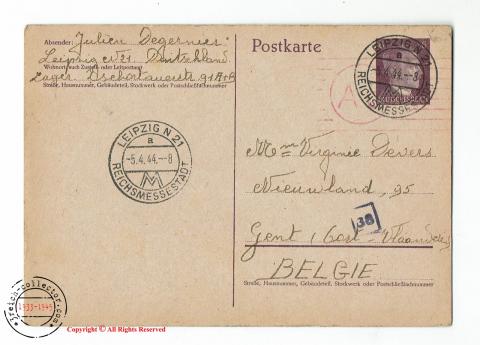 Absender: Julien Degernier
Leipzig N 21 Deutschland
Wohnort, auch Zustell- oder Leitpostamt
Lager
Straße, Hausnummer, Gebäudeteil, Stockwerk oder Postschließfachnummer
Postkarte
LEIPZIG N 21
a
-5.4.44.--8
REICHSMESSESTADT
LEIPZIG N 21
a
-5.4.44.--8
REICHSMESSESTADT
A
Mme Virginie Devers
Nieuwland, 95
38
Gent (Oost-Vlaanderen)
BELGIE
Straße, Hausnummer, Gebäudeteil, Stockwerk oder Postschließfachnummer
3reich-collector.com
1933-1945
Copyright © All Rights Reserved